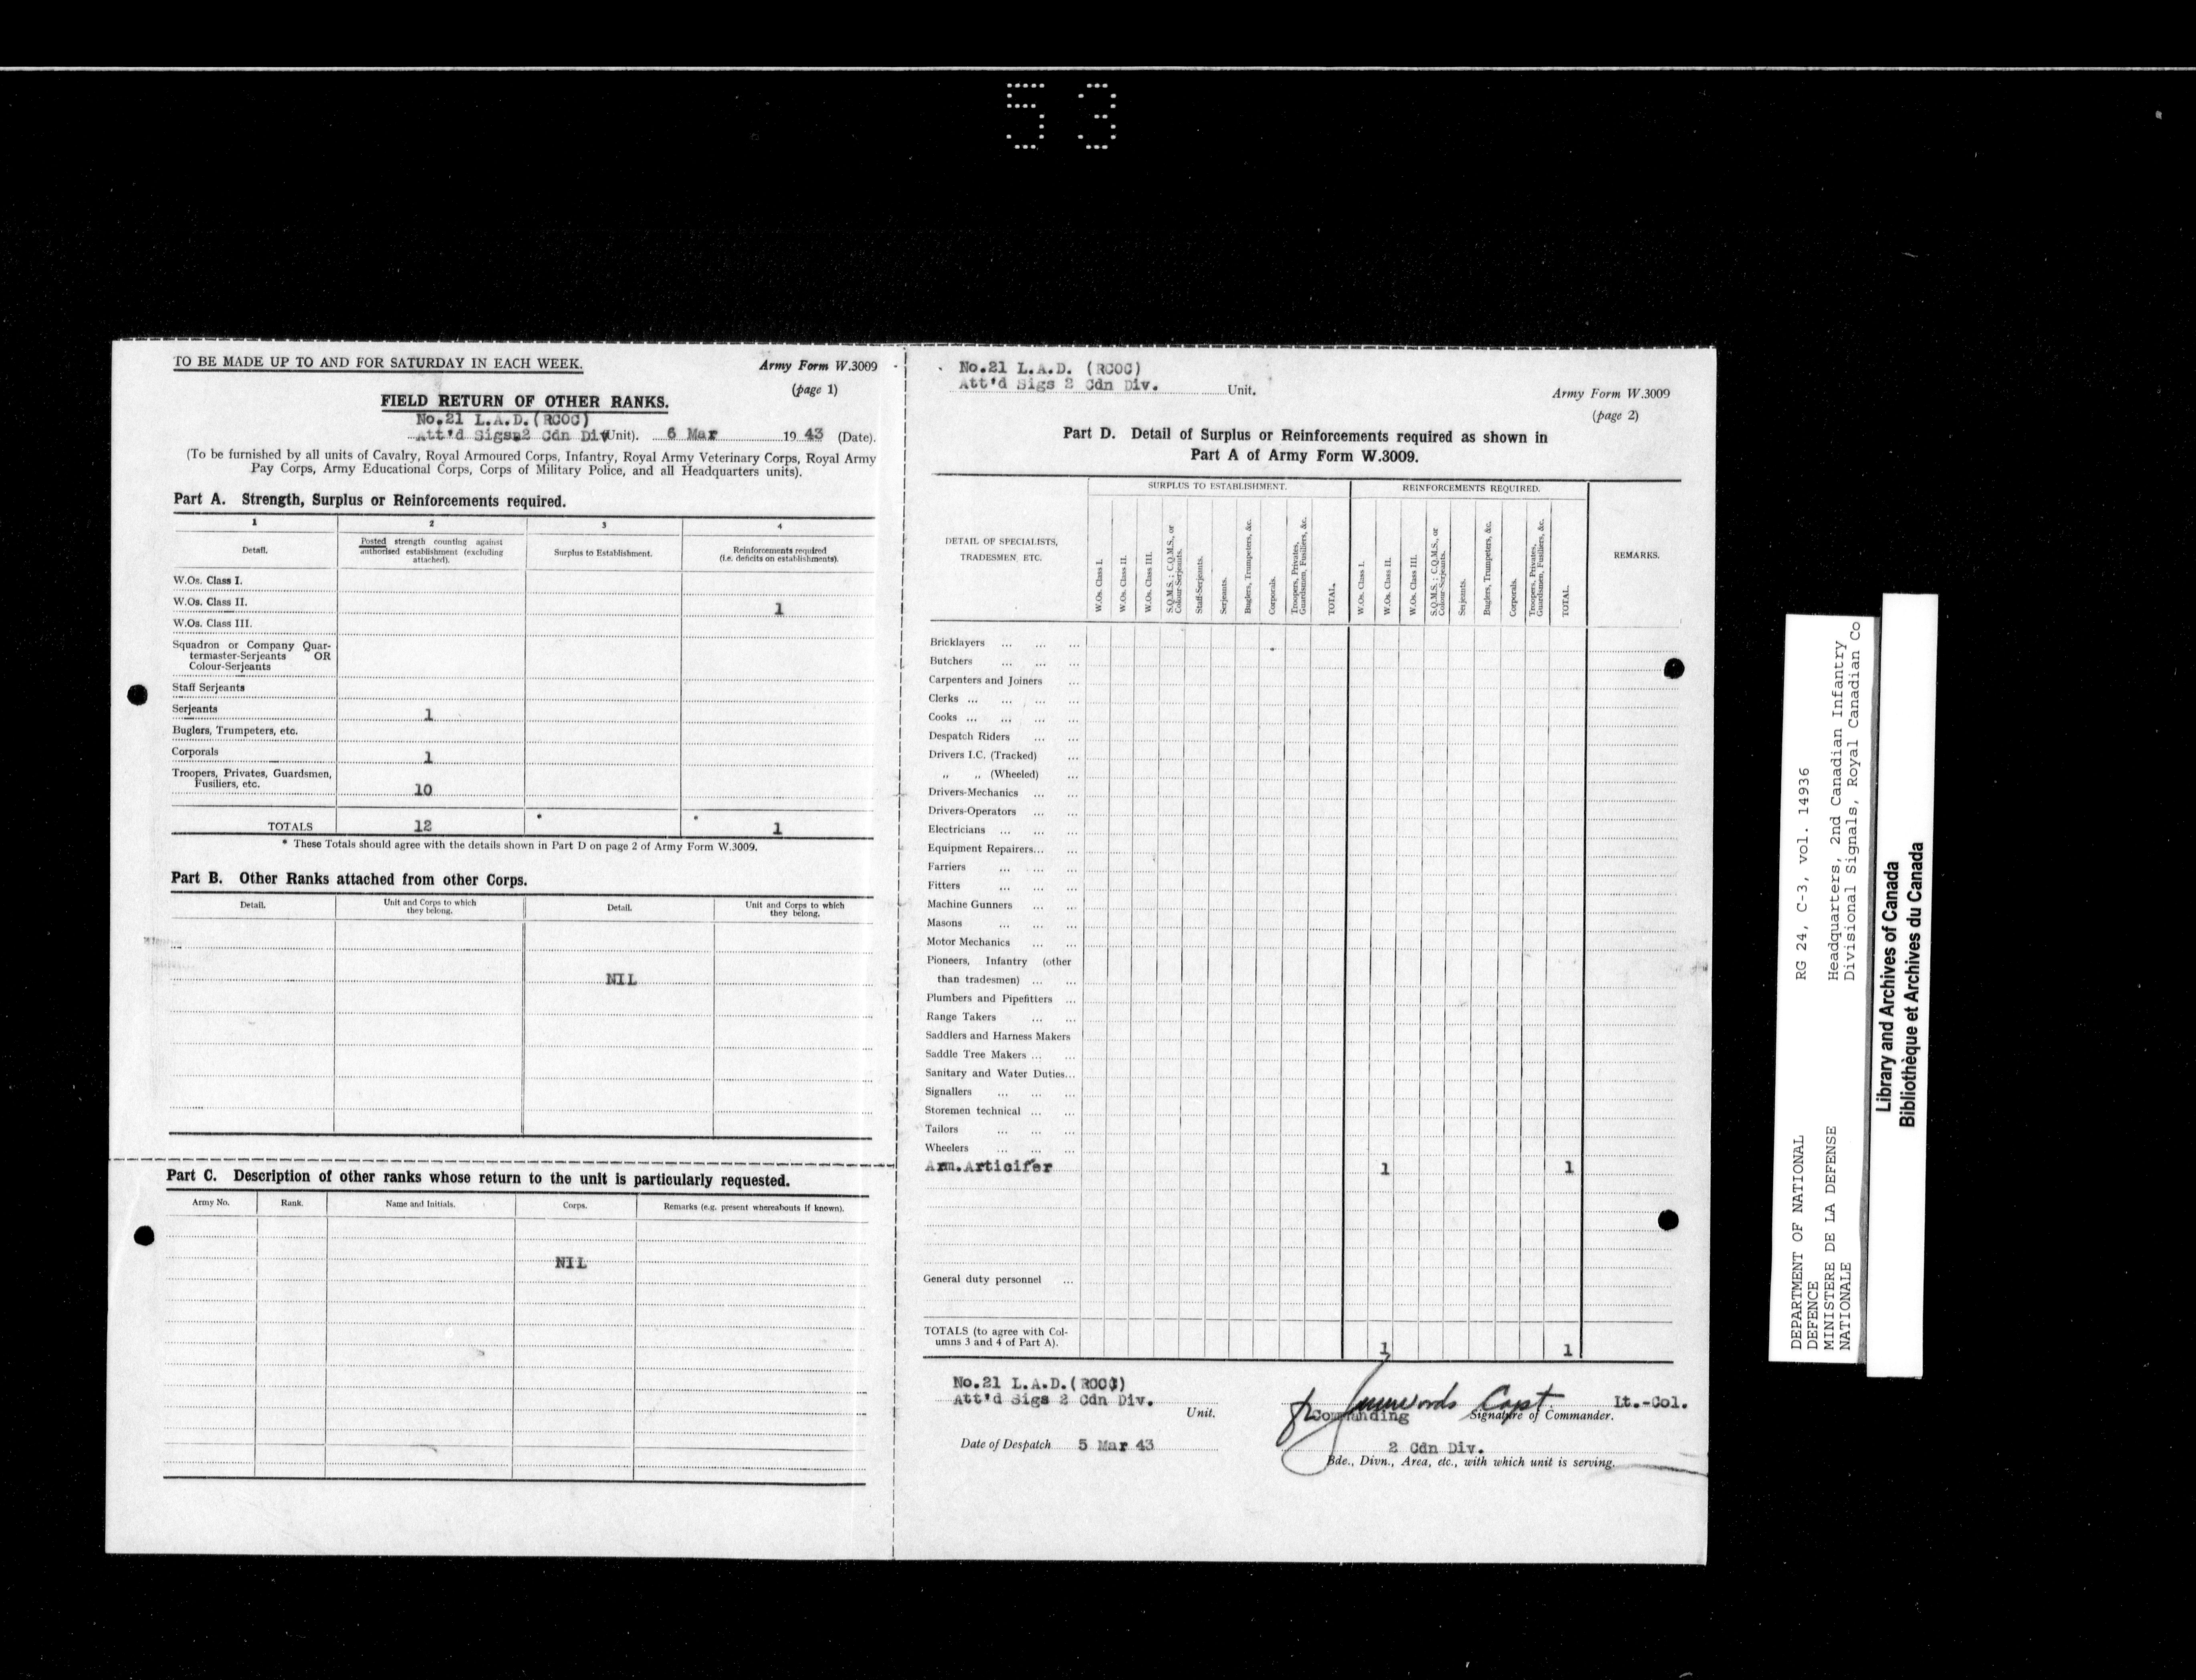 53
TO BE MADE UP TO AND FOR SATURDAY IN EACH WEEK.
Army Form W.3009
(page 1)
FIELD RETURN OF OTHER RANKS.
No.21 L.A.D.(RCOC)
Att'd Sigs 2 Cdn Div (Unit). 6 Mar 19 43 (Date).
(To be furnished by all units of Cavalry, Royal Armoured Corps, Infantry, Royal Army Veterinary Corps, Royal Army
Pay Corps, Army Educational Corps, Corps of Military Police, and all Headquarters units).
Part A. Strength, Surplus or Reinforcements required.
1 2 3 4
Detail.
Posted strength counting against
authorised establishment (excluding
attached).
Surplus to Establishment.
Reinforcements required
(i.e. deficits on establishments).
W.Os. Class I.
W.Os. Class II. 1
W.Os. Class III.
Squadron or Company Quar-
termaster-Serjeants OR
Colour-Serjeants
Staff Serjeants
Serjeants 1
Buglers, Trumpeters, etc.
Corporals 1
Troopers, Privates, Guardsmen,
Fusiliers, etc. 10
TOTALS 12 * * 1
* These Totals should agree with the details shown in Part D on page 2 of Army Form W.3009.
Part B. Other Ranks attached from other Corps.
Detail.
Unit and Corps to which
they belong.
Detail.
Unit and Corps to which
they belong.
NIL
Part C. Description of other ranks whose return to the unit is particularly requested.
Army No. Rank. Name and Initials. Corps. Remarks (e.g. present whereabouts if known).
NIL
No.21 L.A.D. (RCOC)
Att'd Sigs 2 Cdn Div. Unit.
Army Form W.3009
(page 2)
Part D. Detail of Surplus or Reinforcements required as shown in
Part A of Army Form W.3009.
DETAIL OF SPECIALISTS,
TRADESMEN, ETC.
SURPLUS TO ESTABLISHMENT.
W.Os. Class I.
W.Os. Class II.
W.Os. Class III.
S.Q.M.S.; C.Q.M.S., or
Colour-Serjeants.
Staff-Serjeants.
Serjeants.
Buglers, Trumpeters, &c.
Corporals.
Troopers, Privates,
Guardsmen, Fusiliers, &c.
TOTAL.
REINFORCEMENTS REQUIRED.
W.Os. Class I.
W.Os. Class II.
W.Os. Class III.
S.Q.M.S.; C.Q.M.S., or
Colour-Serjeants.
Serjeants.
Buglers, Trumpeters, &c.
Corporals.
Troopers, Privates,
Guardsmen, Fusiliers, &c.
TOTAL.
REMARKS.
Bricklayers ... ... ...
Butchers ... ... ...
Carpenters and Joiners ...
Clerks ... ... ... ...
Cooks ... ... ... ...
Despatch Riders ... ...
Drivers I.C. (Tracked) ...
„ „ (Wheeled) ...
Drivers-Mechanics ... ...
Drivers-Operators ... ...
Electricians ... ... ...
Equipment Repairers... ...
Farriers ... ... ...
Fitters ... ... ...
Machine Gunners ... ...
Masons ... ... ...
Motor Mechanics ... ...
Pioneers, Infantry (other
than tradesmen) ... ...
Plumbers and Pipefitters ...
Range Takers ... ...
Saddlers and Harness Makers
Saddle Tree Makers ... ...
Sanitary and Water Duties...
Signallers ... ... ...
Storemen technical ... ...
Tailors ... ... ...
Wheelers ... ... ...
Arm.Articifer 1 1
General duty personnel ...
TOTALS (to agree with Col-
umns 3 and 4 of Part A). 1 1
No.21 L.A.D.(RCOC)
Att'd Sigs 2 Cdn Div.
Unit.
Capt Lt.-Col.
Commanding Signature of Commander.
Date of Despatch 5 Mar 43
2 Cdn Div.
Bde., Divn., Area, etc., with which unit is serving.
DEPARTMENT OF NATIONAL
DEFENCE
MINISTERE DE LA DEFENSE
NATIONALE
RG 24, C-3, vol. 14936
Headquarters, 2nd Canadian Infantry
Divisional Signals, Royal Canadian Co
Library and Archives of Canada
Bibliothèque et Archives du Canada